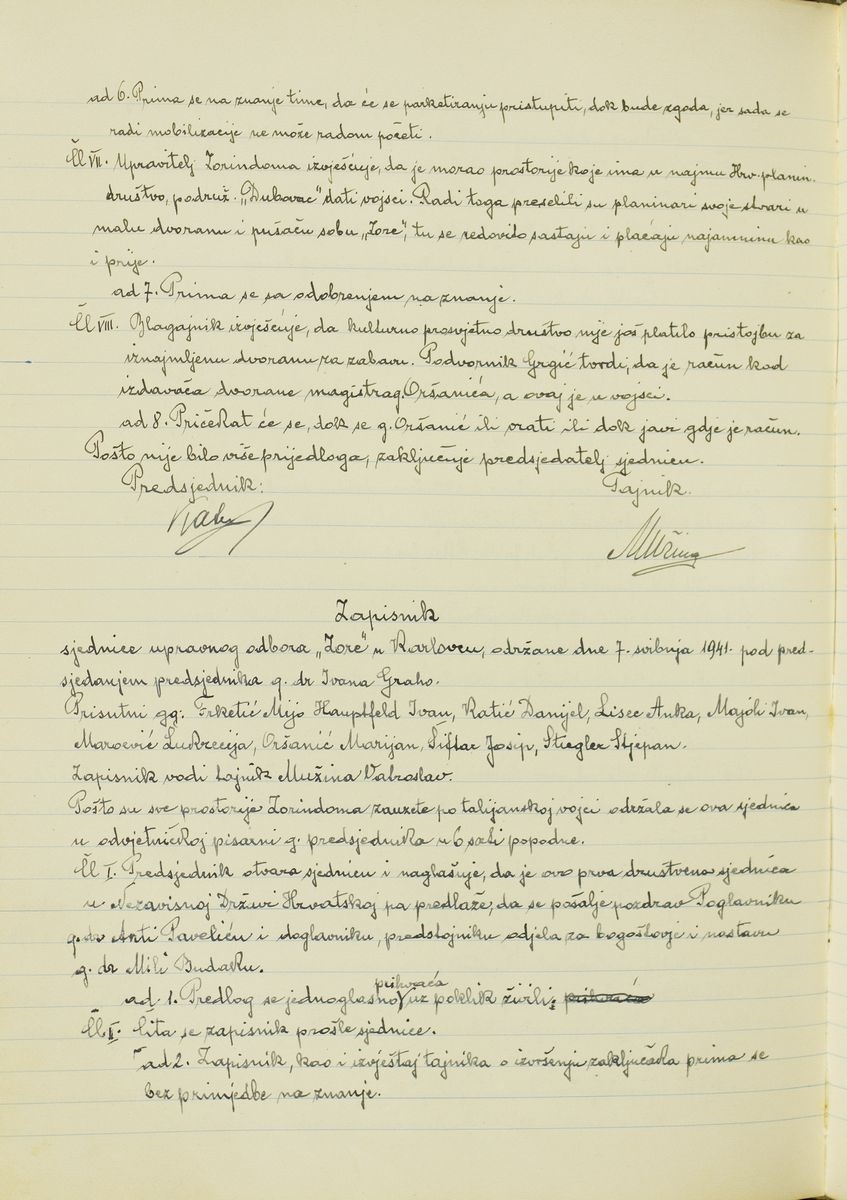 ad 6. Prima se na znanje time, da će se parketiranju pristupiti, dok bude zgoda, jer sada se
radi mobilizacije ne može radom početi.
Čl VII. Upravitelj Zorindoma izvješćuje, da je morao prostorije koje ima u najmu Hrv. planin.
društvo, podruž. "Dubovac" dati vojsci. Radi toga preselili su planinari svoje stvari u
malu dvoranu i pušaću sobu „Zore“, tu se redovito sastaju i plaćaju najamninu kao
i prije.
ad 7. Prima se sa odobrenjem na znanje.
Čl VIII. Blagajnik izvješćuje, da kulturno prosvjetno društvo nije još platilo pristojbu za
iznajmljenu dvoranu za zabavu. Podvornik Grgić tvrdi, da je račun kod
izdavača dvorane magistra g. Oršanića, a ovaj je u vojsci.
ad 8. Pričekat će se, dok se g. Oršanić ili vrati ili dok javi gdje je račun.
Pošto nije bilo više prijedloga, zaključuje predsjedatelj sjednicu.
Predsjednik: Tajnik.
MMužina
Zapisnik
sjednice upravnog odbora „Zore“ u Karlovcu, održane dne 7. svibnja 1941. pod pred-
sjedanjem predsjednika g. dr Ivana Graho.
Prisutni gg: Frketić Mijo Hauptfeld Ivan, Katić Danijel, Lisec Anka, Majóli Ivan,
Maroević Lukrecija, Oršanić Marijan, Šiftar Josip, Stiegler Stjepan.
Zapisnik vodi tajnik Mužina Vatroslav.
Pošto su sve prostorije Zorindoma zauzete po talijanskoj vojsci održala se ova sjednica
u odvjetničkoj pisarni g. predsjednika u 6 sati popodne.
Čl I. Predsjednik otvara sjednicu i naglašuje, da je ovo prva društvena sjednica
u Nezavisnoj Državi Hrvatskoj pa predlaže, da se pošalje pozdrav Poglavniku
g. dr Anti Paveliću i doglavniku, predstojniku odjela za bogoštovje i nastavu
g. dr Mili Budaku.
ad. 1. Predlog se jednoglasno prihvaća uz poklik živili; prihvaća
Čl. II. Čita se zapisnik prošle sjednice.
ad 2. Zapisnik, kao i izvještaj tajnika o izvršenju zaključaka prima se
bez primjedbe na znanje.